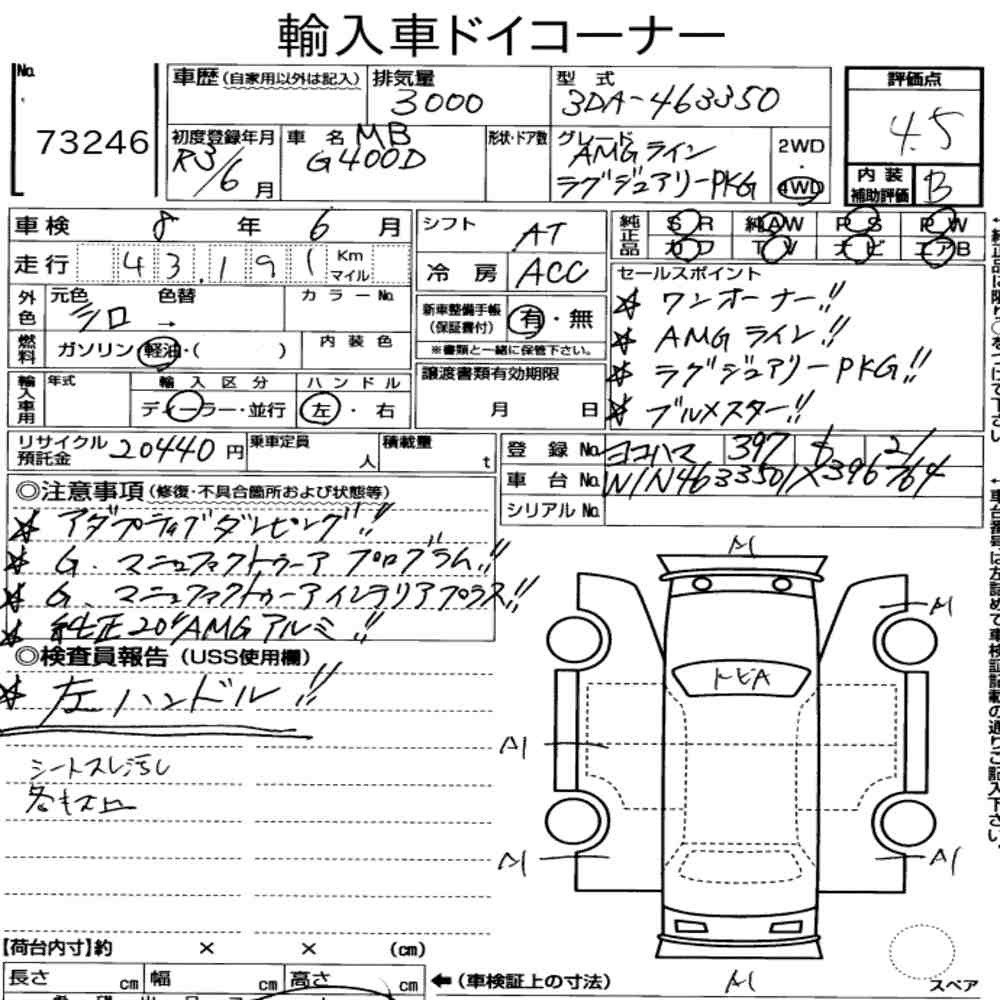 輸入車ドイコーナー
No.
73246
車歴(自家用以外は記入)
排気量
3000
型式
3DA-463350
評価点
4.5
初度登録年月
R3/6月
車名 MB
G400D
形状・ドア数
グレード
AMGライン
ラグジュアリーPKG
2WD
・
4WD
内装
補助評価
B
車検 8年 6月
走行 43,191 Km
マイル
シフト
AT
冷房
ACC
純正品
SR 純AW PS PW
カワ TV ナビ エアB
外色
元色
シロ →
色替
カラーNo.
燃料
ガソリン・軽油・( )
内装色
新車整備手帳
(保証書付)
有・無
※書類と一緒に保管下さい。
セールスポイント
☆ ワンオーナー!!
☆ AMGライン!!
☆ ラグジュアリーPKG!!
☆ ブルメスター!!
輸入車用
年式
輸入区分
ディーラー・並行
ハンドル
左・右
譲渡書類有効期限
月 日
リサイクル
預託金
20440円
乗車定員
人
積載量
t
登録No.
ヨコハマ 397 21
車台No.
W1N4633501X396764
シリアルNo.
◎注意事項(修復・不具合箇所および状態等)
☆ アダプティブダンピング!!
☆ G.マニュファクトゥーアプログラム!!
☆ G.マニュファクトゥーアインテリアプラス!!
☆ 純正20"AMGアルミ!!
◎検査員報告(USS使用欄)
☆ 左ハンドル!!
シートスレ汚し
各キズ凹
A1
A1
トビA
A1
A1
A1
A1
スペア
【荷台内寸】約 × × (cm)
長さ cm 幅 cm 高さ cm
←(車検証上の寸法)